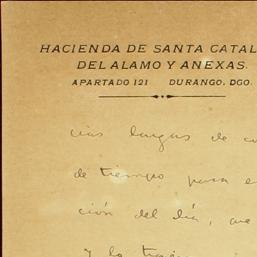 HACIENDA DE SANTA CATAL
DEL ALAMO Y ANEXAS.
APARTADO 121 DURANGO, DGO.
cias largas de co
de tiempo para e
ción del día, que
y lo